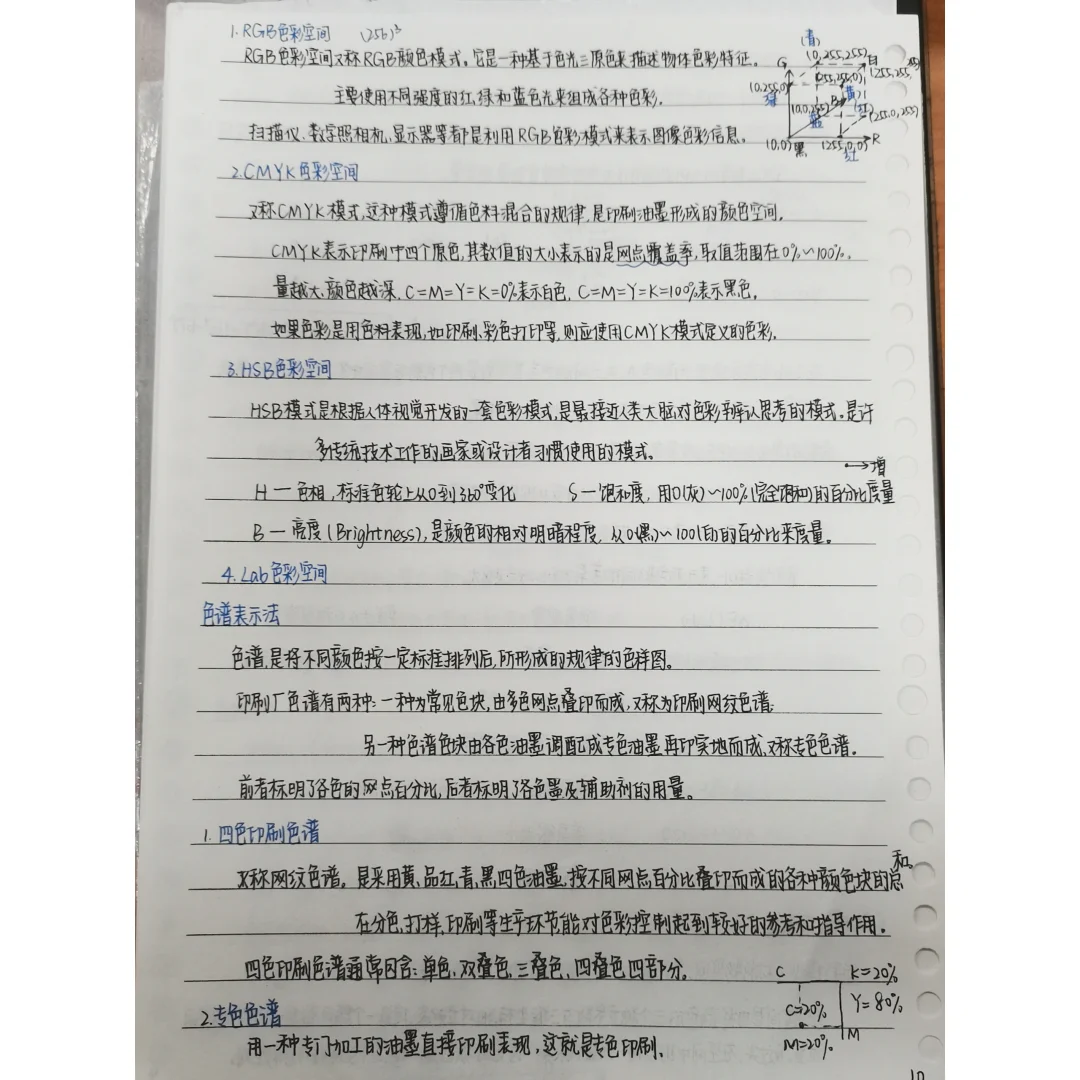 1.RGB色彩空间 (256)³
RGB色彩空间又称RGB颜色模式。它是一种基于色光三原色来描述物体色彩特征。
主要使用不同强度的红,绿和蓝色光来组成各种色彩.
扫描仪、数字照相机、显示器等都是利用RGB色彩模式来表示图像色彩信息。
(青)
G (0,255,255) 白
(255,255,255)
(0,255,0)
绿
(255,255,0)
黄
(0,0,255) B
蓝
(255,0,255)
(0,0) 黑 (255,0,0) R
红
2.CMYK色彩空间
又称CMYK模式,这种模式遵循色料混合的规律,是印刷油墨形成的颜色空间.
CMYK表示印刷中四个原色,其数值的大小表示的是网点覆盖率,取值范围在0%~100%.
量越大,颜色越深. C=M=Y=K=0%表示白色, C=M=Y=K=100%表示黑色.
如果色彩是用色料表现,如印刷、彩色打印等,则应使用CMYK模式定义的色彩.
3.HSB色彩空间
HSB模式是根据人体视觉开发的一套色彩模式,是最接近人类大脑对色彩辨认思考的模式。是许
多传统技术工作的画家或设计者习惯使用的模式。
→增
H—色相,标准色轮上从0到360°变化 S—饱和度,用0(灰)~100%(完全饱和)的百分比度量
B—亮度(Brightness),是颜色的相对明暗程度,从0(黑)~100(白)的百分比来度量。
4.Lab色彩空间
色谱表示法
色谱,是将不同颜色按一定标准排列后,所形成的规律的色样图。
印刷厂色谱有两种:一种为常见色块,由多色网点叠印而成,又称为印刷网纹色谱;
另一种色谱色块由各色油墨调配成专色油墨再印实地而成,又称专色色谱。
前者标明了各色的网点百分比,后者标明了各色墨及辅助剂的用量。
1.四色印刷色谱
又称网纹色谱。是采用黄、品红,青,黑四色油墨,按不同网点百分比叠印而成的各种颜色块的总和。
在分色,打样,印刷等生产环节能对色彩控制起到较好的参考和指导作用。
四色印刷色谱通常包含:单色,双叠色,三叠色,四叠色四部分。
C K=20%
C=20% Y=80%
M=20% M
2.专色色谱
用一种专门加工的油墨直接印刷表现,这就是专色印刷.
10